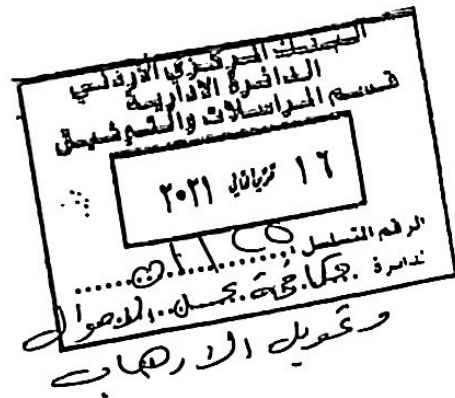 البنك المركزي الأردني
الدائرة الادارية
قسم المراسلات والتوثيق
١٦ تشرين ثاني ٢٠٢١
الرقم المتسلسل :
دائرة مكافحة غسل الاموال
وتمويل الارهاب